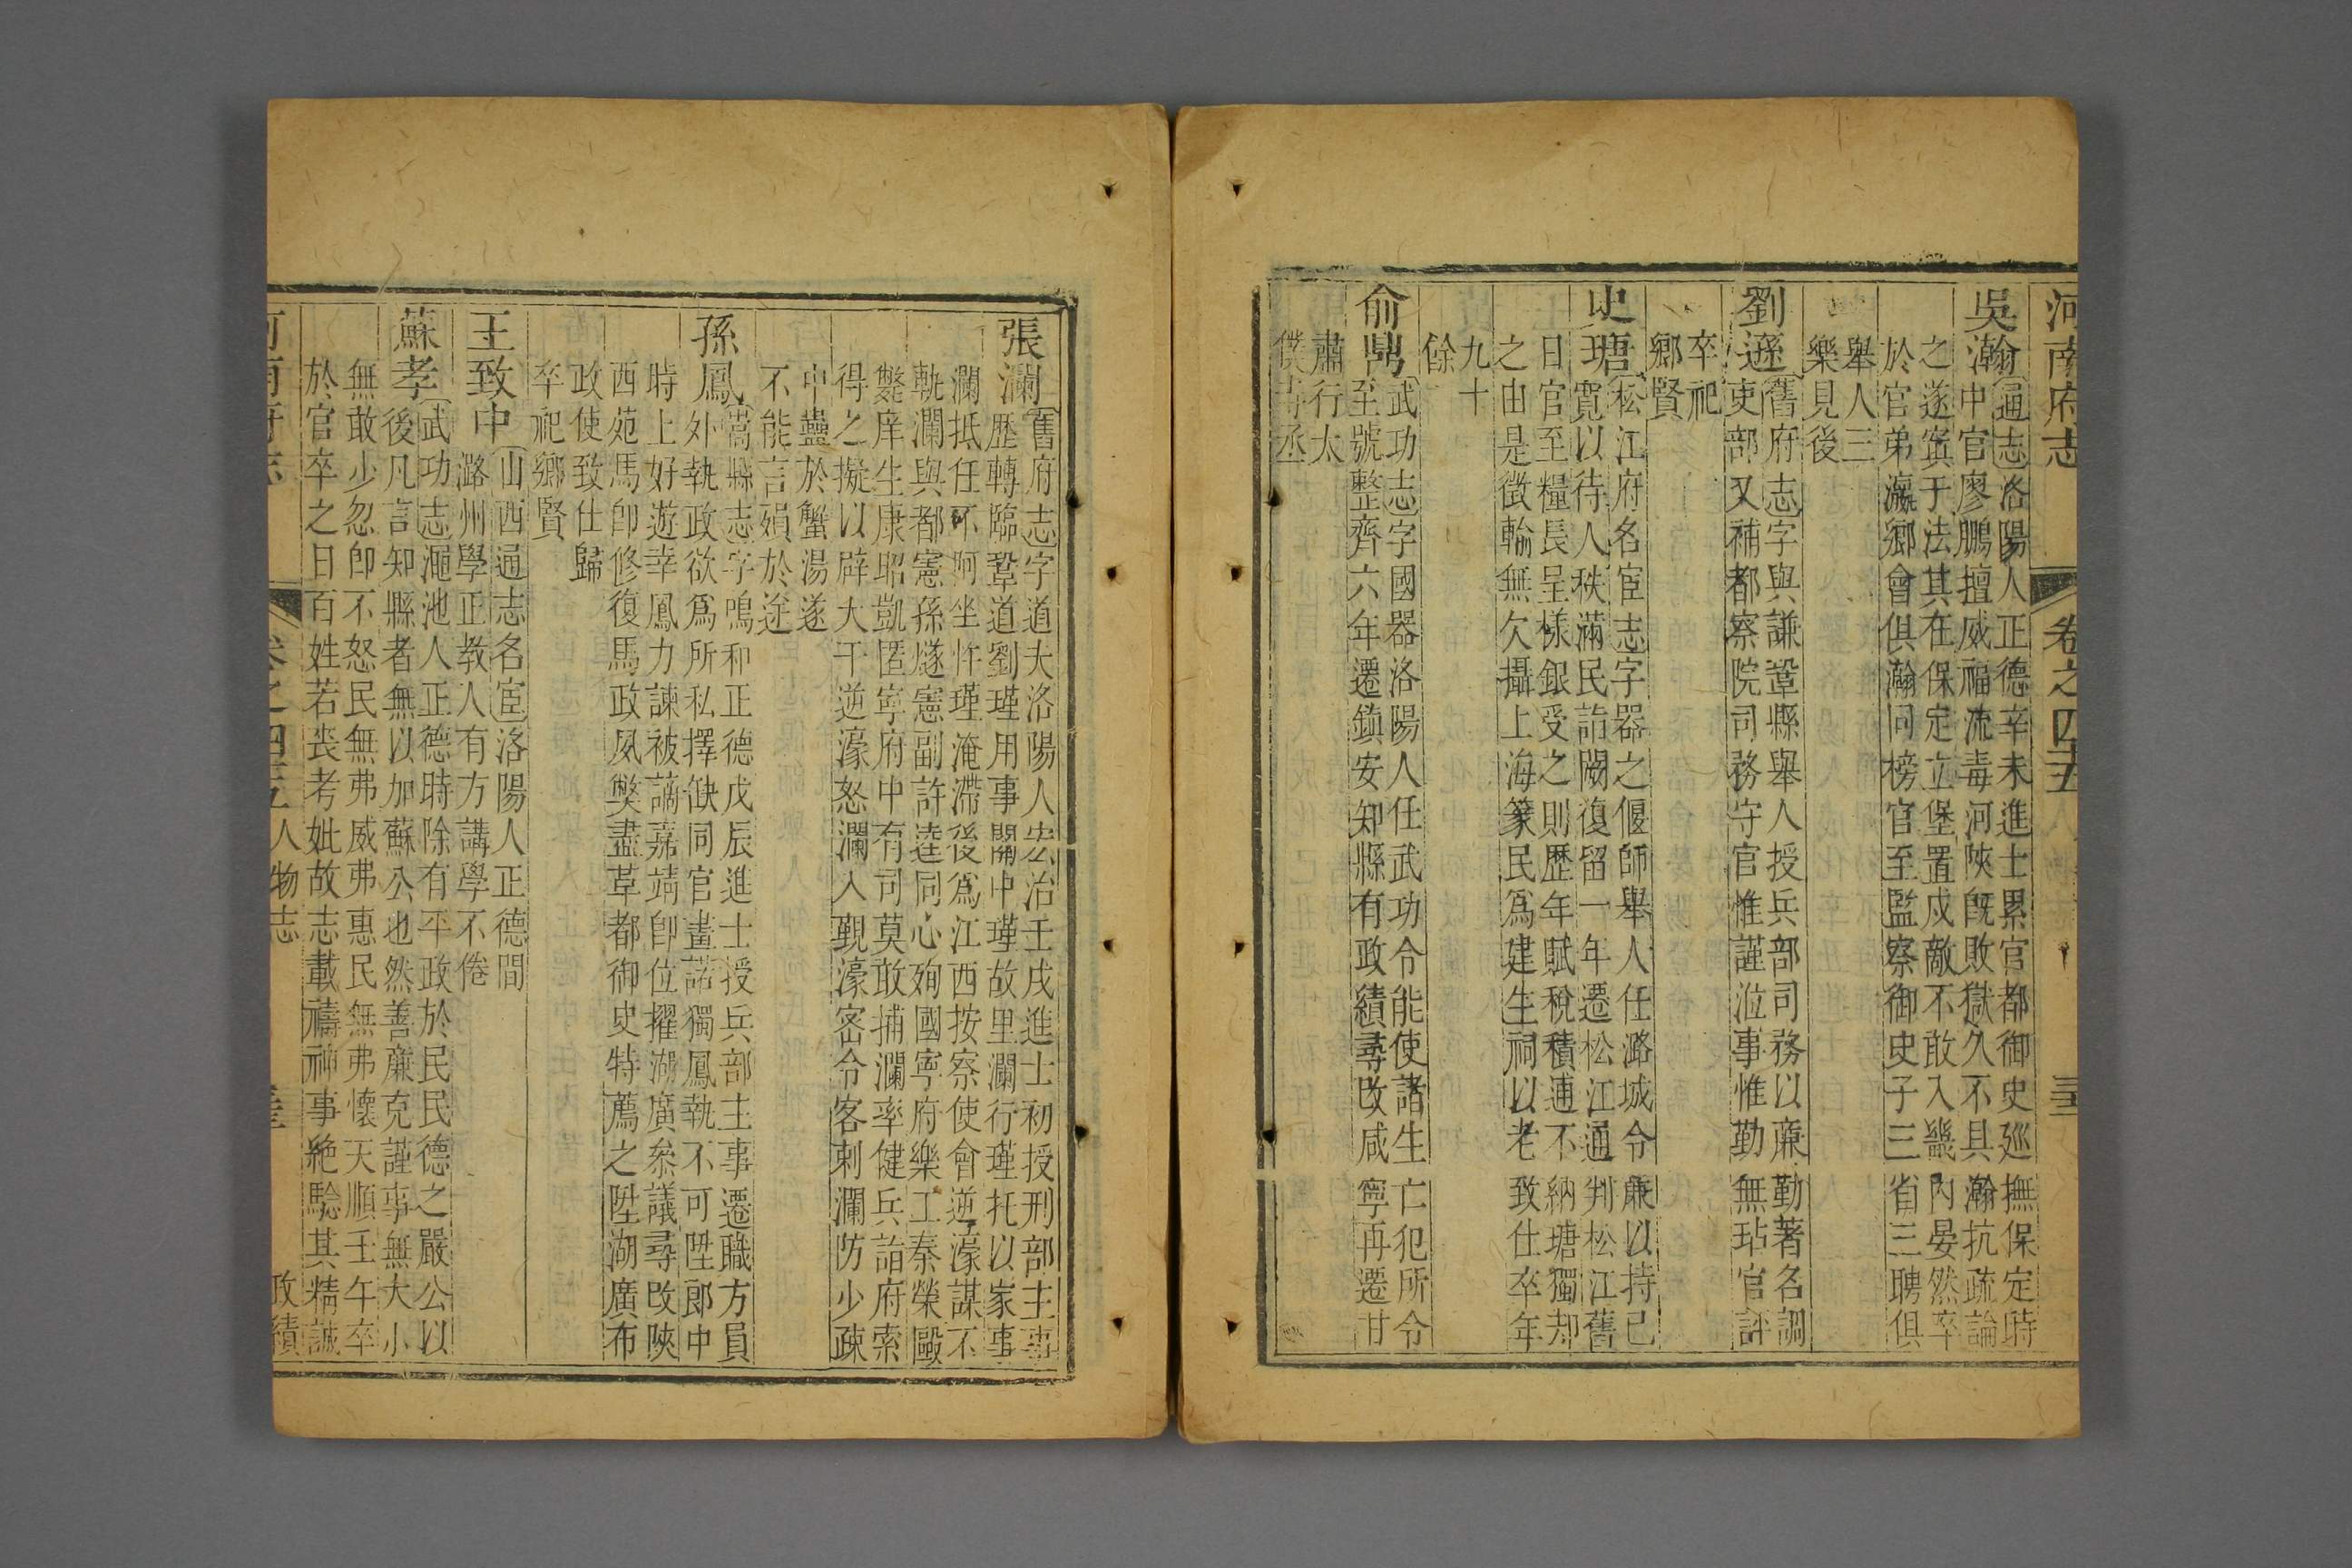 河南府志 卷之四五 三
吳瀚
通志洛陽人正德辛未進士累官都御史廵撫保定時
中官廖鵬擅威福流毒河陝旣敗獄久不具瀚抗疏論
之遂寘于法其在保定立堡置戍敵不敢入畿內晏然卒
於官弟瀛鄉會俱瀚同榜官至監察御史子三省三聘俱
舉人三
樂見後
劉遜
舊府志字與謙鞏縣舉人授兵部司務以廉勤著名調
吏部又補都察院司務守官惟謹涖事惟勤無玷官評
卒祀
鄉賢
史瑭
松江府名宦志字器之偃師舉人任潞城令廉以持已
寬以待人秩滿民詣闕復留一年遷松江通判松江舊
日官至糧長呈樣銀受之則歷年賦稅積逋不納瑭獨却
之由是徵輸無欠攝上海篆民爲建生祠以老致仕卒年
九十
餘
俞鼎
武功志字國器洛陽人任武功令能使諸生亡犯所令
至號整齊六年遷鎮安知縣有政績尋改咸寧再遷甘
肅行太
僕寺丞
張瀾
舊府志字道夫洛陽人宏治壬戌進士初授刑部主事
歷轉臨鞏道劉瑾用事關中瑾故里瀾行瑾托以家事
瀾抵任不阿坐忤瑾淹滯後爲江西按察使會逆濠謀不
軌瀾與都憲孫燧憲副許逵同心殉國寧府樂工秦榮毆
斃庠生康昭凱匿寧府中有司莫敢捕瀾率健兵詣府索
得之擬以辟大干逆濠怒瀾入覲濠密令客刺瀾防少疎
中蠱於蟹湯遂
不能言殞於途
孫鳳
嵩縣志字鳴和正德戊辰進士授兵部主事遷職方員
外執政欲爲所私擇缺同官畫諾獨鳳執不可陞郎中
時上好遊幸鳳力諫被謫嘉靖卽位擢湖廣叅議尋改陝
西苑馬卽修復馬政夙獘盡革都御史特薦之陞湖廣布
政使致仕歸
卒祀鄉賢
王致中
山西通志名宦洛陽人正德間
潞州學正教人有方講學不倦
蘇孝
武功志澠池人正德時除有平政於民民德之嚴公以
後凡言知縣者無以加蘇公也然善廉克謹事無大小
無敢少忽卽不怒民無弗威弗惠民無弗懷天順壬午卒
於官卒之日百姓若喪考妣故志載禱神事絶驗其精誠
河南府志 卷之四五 人物志 政績